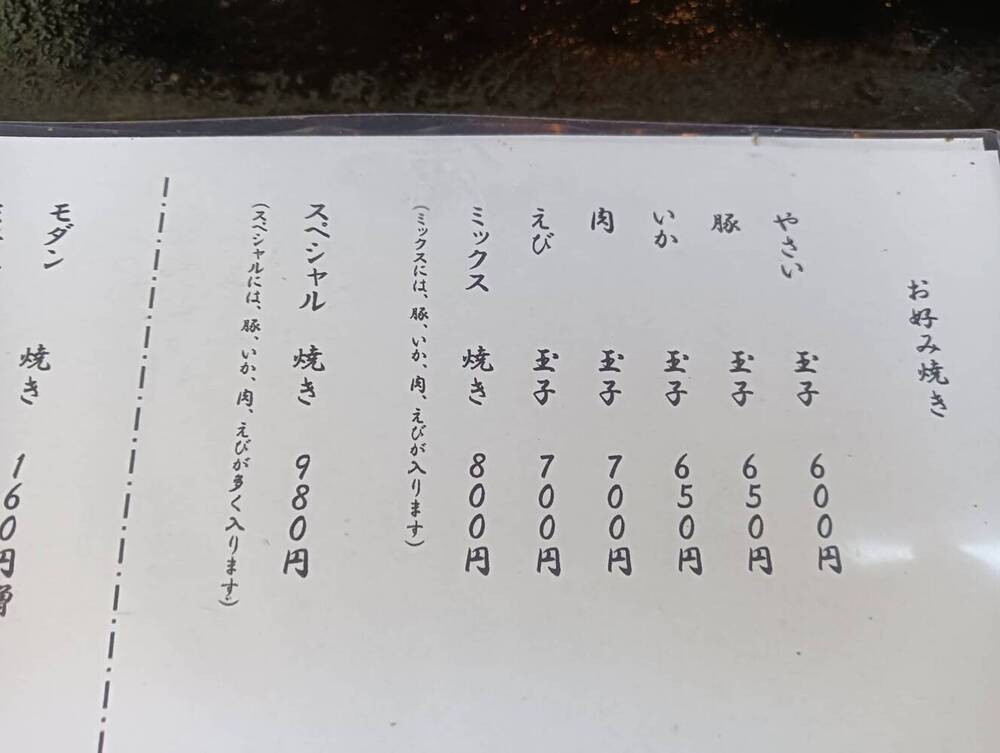 お好み焼き
やさい 玉子 600円
豚 玉子 650円
いか 玉子 650円
肉 玉子 700円
えび 玉子 700円
ミックス 焼き 800円
(ミックスには、豚、いか、肉、えびが入ります)
スペシャル 焼き 980円
(スペシャルには、豚、いか、肉、えびが多く入ります)
モダン 焼き 160円増